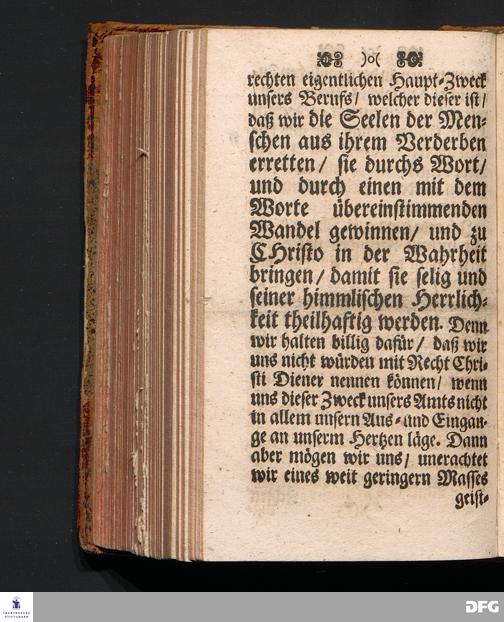 )o(
rechten eigentlichen Haupt-Zweck
unsers Berufs/ welcher dieser ist/
daß wir die Seelen der Men-
schen aus ihrem Verderben
erretten/ sie durchs Wort/
und durch einen mit dem
Worte übereinstimmenden
Wandel gewinnen/ und zu
CHristo in der Wahrheit
bringen/ damit sie selig und
seiner himmlischen Herrlich-
keit theilhaftig werden. Denn
wir halten billig dafür/ daß wir
uns nicht würden mit Recht Chri-
sti Diener nennen können/ wenn
uns dieser Zweck unsers Amts nicht
in allem unsern Aus- und Eingan-
ge an unserm Hertzen läge. Dann
aber mögen wir uns/ unerachtet
wir eines weit geringern Masses
geist-
FRANCKESCHE
STIFTUNGEN
DFG